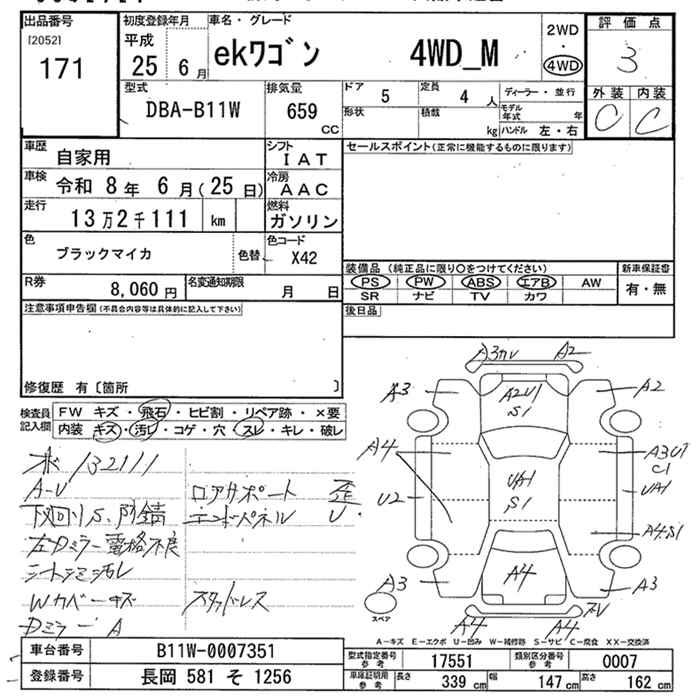 出品番号 初度登録年月 車名・グレード 2WD 評価点
[2052]
171 平成 25 6月 ekワゴン 4WD_M ・ 4WD 3
型式 排気量 ドア 5 定員 4人 ディーラー・並行 外装 内装
DBA-B11W 659 CC 形状 積載 kg モデル年式 年 C C
ハンドル 左・右
車歴 自家用 シフト IAT セールスポイント(正常に機能するものに限ります)
車検 令和 8年 6月(25日) 冷房 AAC
走行 13万2千111 km 燃料 ガソリン
色 ブラックマイカ 色替 色コード X42
装備品 (純正品に限り○をつけてください) 新車保証書
R券 8,060円 名変通知期限 月 日 PS PW ABS エアB AW 有・無
SR ナビ TV カワ
注意事項申告欄(不具合内容等は具体的に記入して下さい) 後日品
修復歴 有〔箇所 〕
検査員記入欄 FW キズ・飛石・ヒビ割・リペア跡・×要
内装 キズ・汚レ・コゲ・穴・スレ・キレ・破レ
132111
A-U ロアサポート 歪
下回りS.内錆 エンドパネル U
左Dミラー電格不良
シートシミ汚レ
Wカバーキズ スタッドレス
Dミラー A
A3カレ A2
A3 A2U1 S1 A2
A4 A3U1 C1
U2 UA1 S1 UA1
A4.S1
A3 A4 A3
スペア A4 A4
A-キズ E-エクボ U-凹み W-補修跡 S-サビ C-腐食 XX-交換済
車台番号 B11W-0007351 型式指定番号 参考 17551 類別区分番号 参考 0007
登録番号 長岡 581 そ 1256 車庫証明用 参考 長さ 339cm 幅 147cm 高さ 162cm